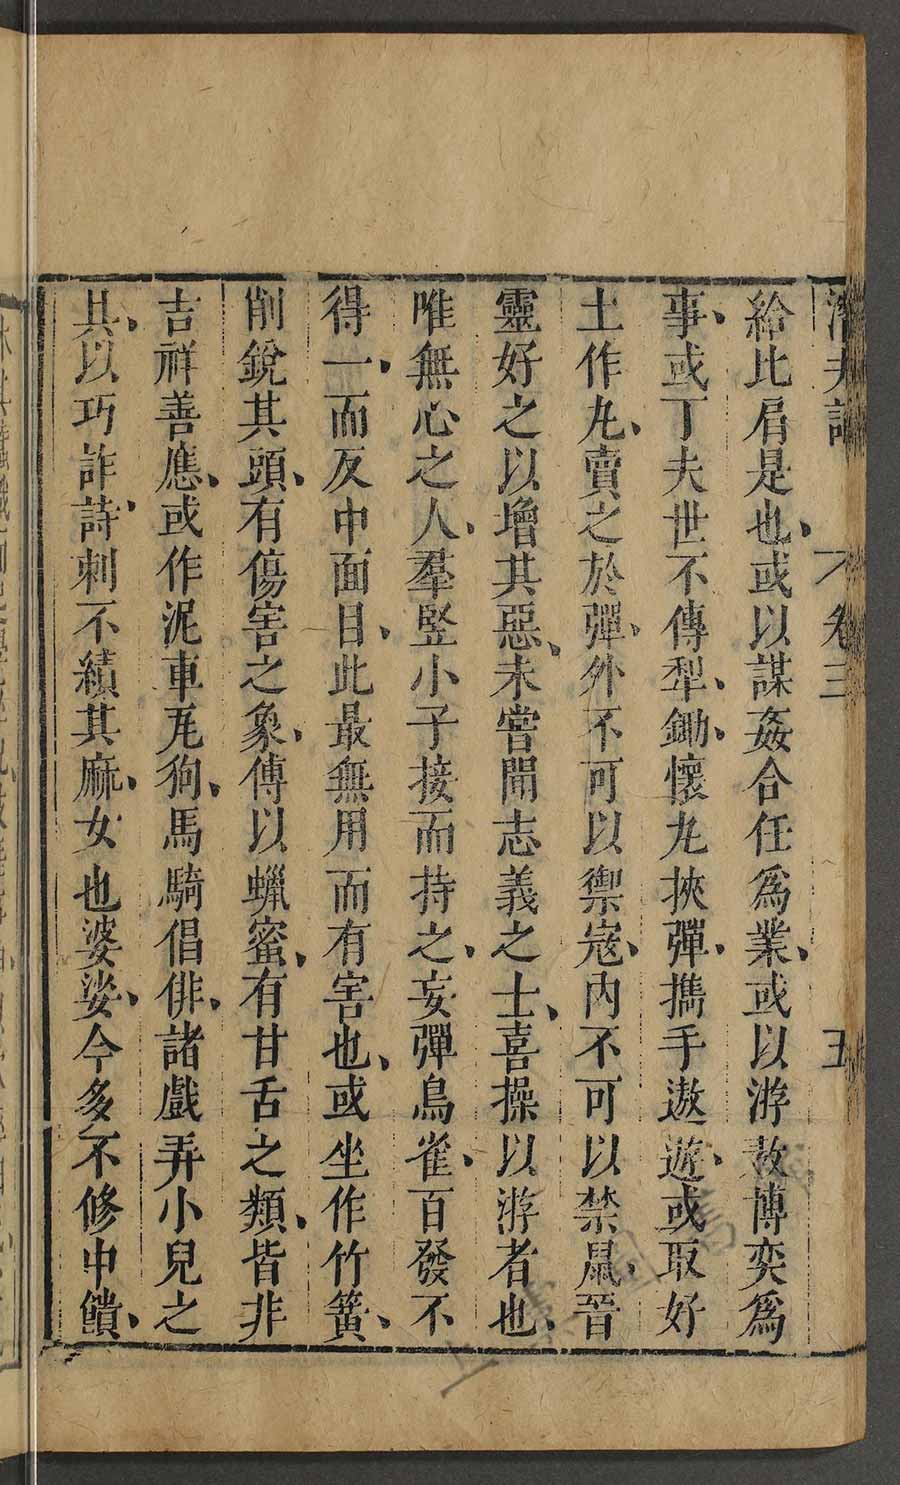 潛夫論 卷三 五
給比肩是也、或以謀姦合任爲業、或以游敖博奕爲
事、或丁夫世不傳犁、鋤、懷丸挾彈、擕手遨遊、或取好
土作丸、賣之於彈、外不可以禦寇、内不可以禁鼠、晉
靈好之以增其惡、未嘗聞志義之士、喜操以游者也、
唯無心之人、羣竪小子接而持之、妄彈鳥雀、百發不
得一、而反中面目、此最無用而有害也、或坐作竹簧、
削銳其頭、有傷害之象、傅以蠟蜜、有甘舌之類、皆非
吉祥善應、或作泥車瓦狗、馬騎倡俳、諸戲弄小兒之
具、以巧詐、詩刺不績其麻、女也婆娑、今多不修中饋、